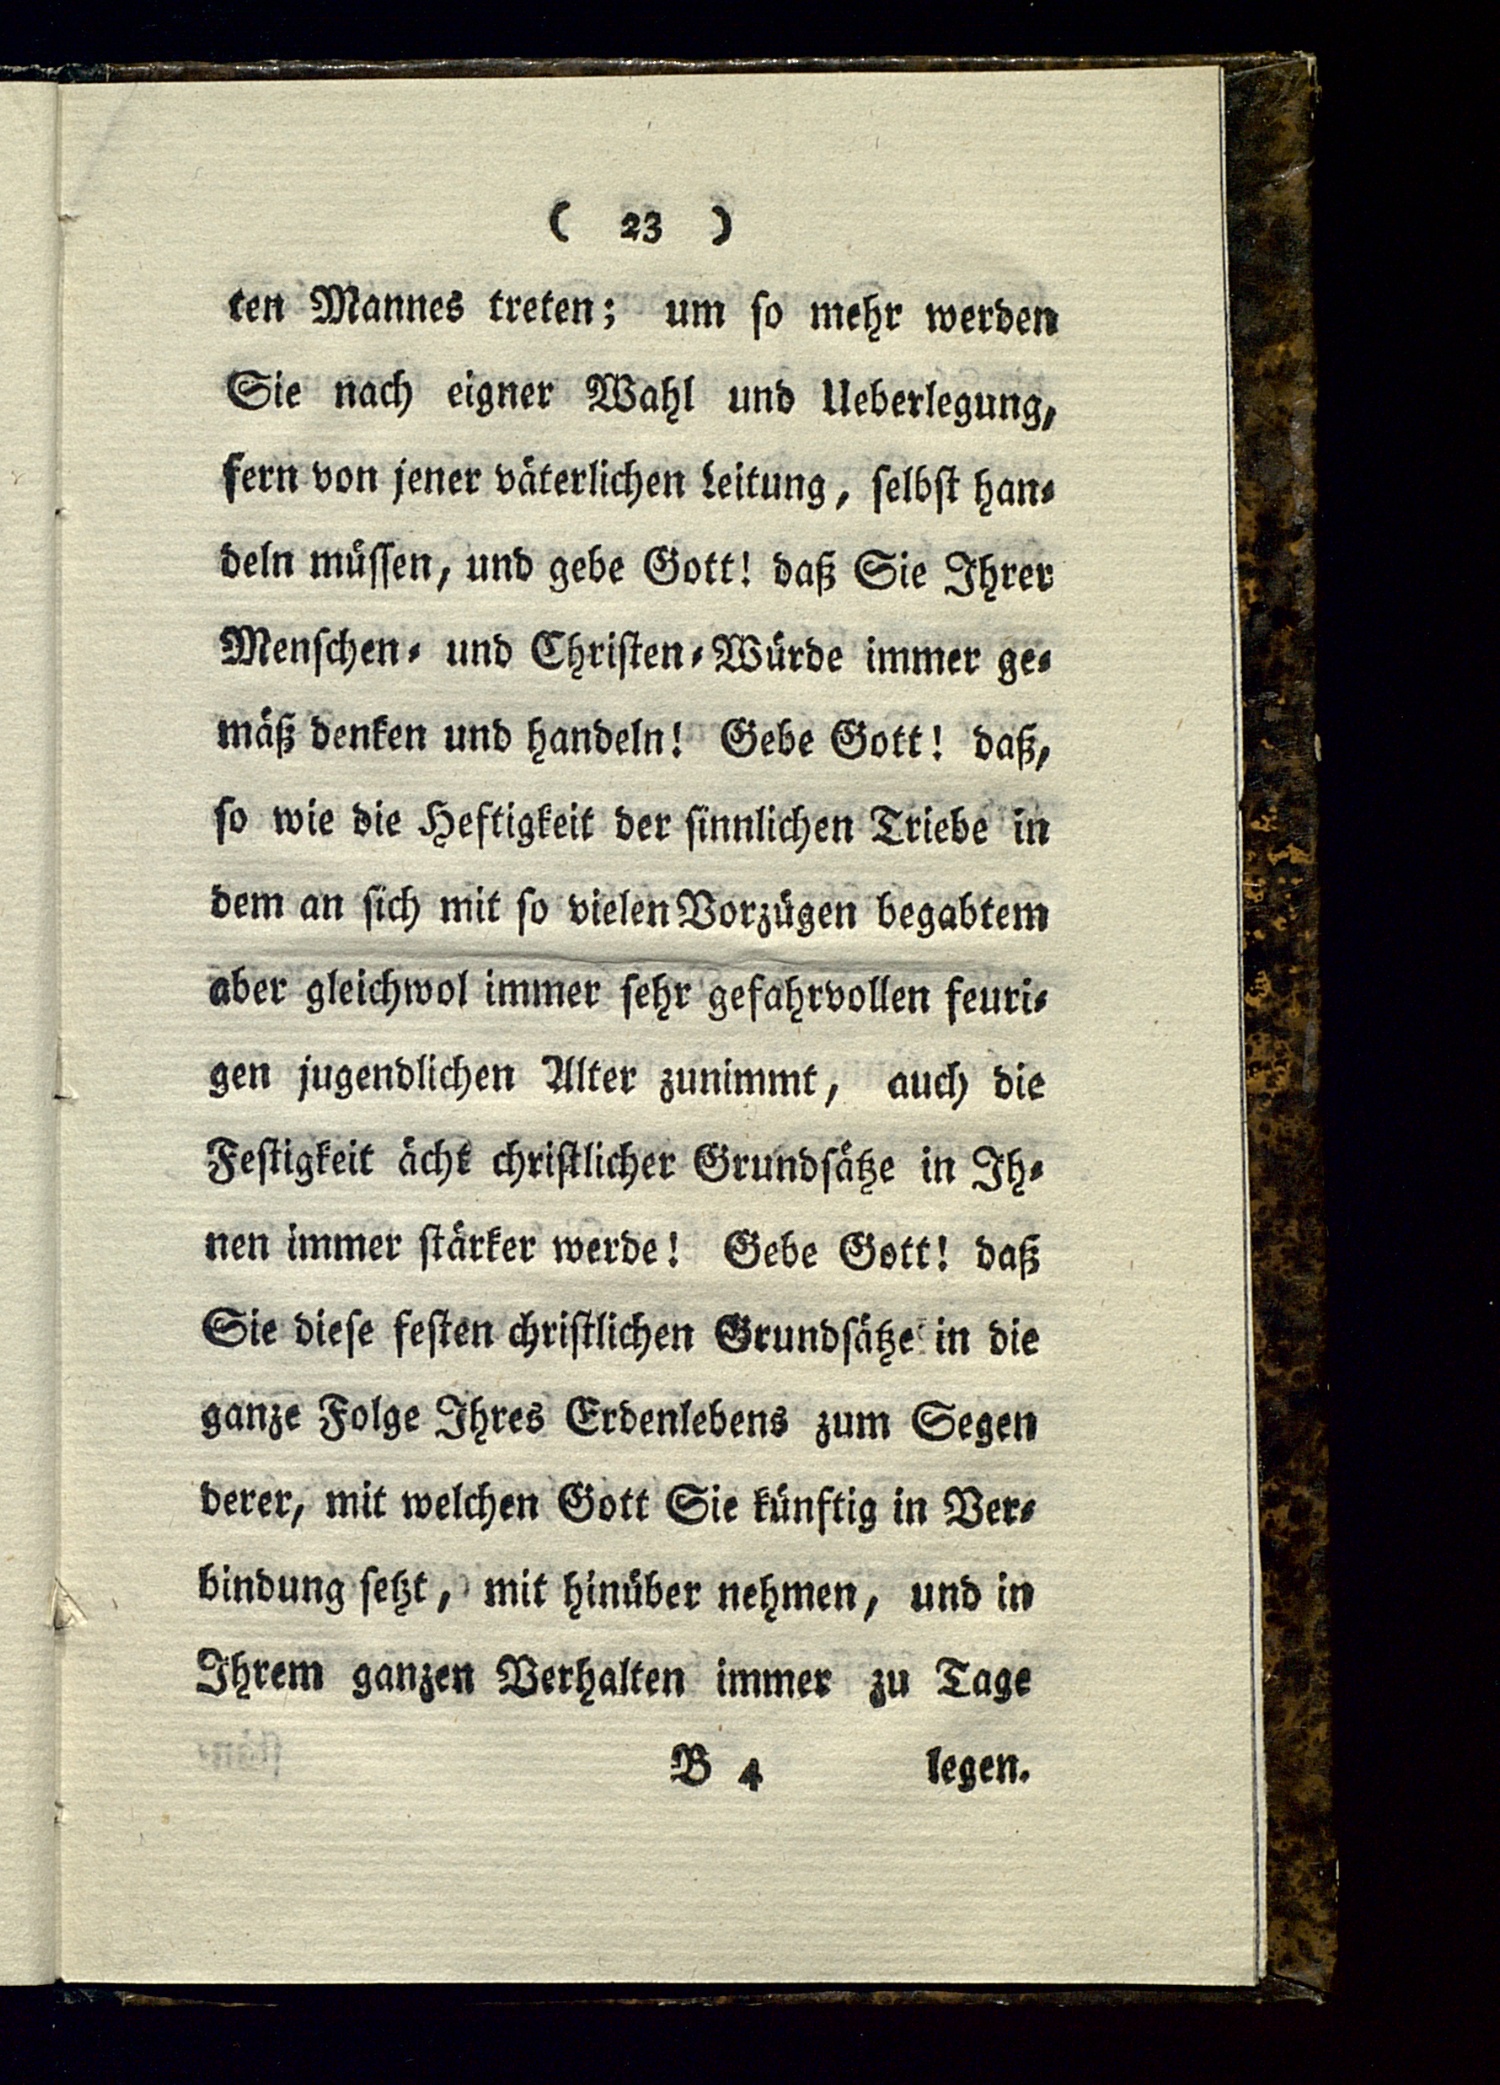 ( 23 )
ten Mannes treten; um ſo mehr werden
Sie nach eigner Wahl und Ueberlegung,
fern von jener väterlichen Leitung, ſelbſt han⸗
deln müſſen, und gebe Gott! daß Sie Ihrer
Menſchen⸗ und Chriſten⸗Würde immer ge⸗
mäß denken und handeln! Gebe Gott! daß,
ſo wie die Heftigkeit der ſinnlichen Triebe in
dem an ſich mit ſo vielen Vorzügen begabtem
aber gleichwol immer ſehr gefahrvollen feuri⸗
gen jugendlichen Alter zunimmt, auch die
Feſtigkeit ächt chriſtlicher Grundſätze in Ih⸗
nen immer ſtärker werde! Gebe Gott! daß
Sie dieſe feſten chriſtlichen Grundſätze in die
ganze Folge Ihres Erdenlebens zum Segen
derer, mit welchen Gott Sie künftig in Ver⸗
bindung ſetzt, mit hinüber nehmen, und in
Ihrem ganzen Verhalten immer zu Tage
B 4 legen.